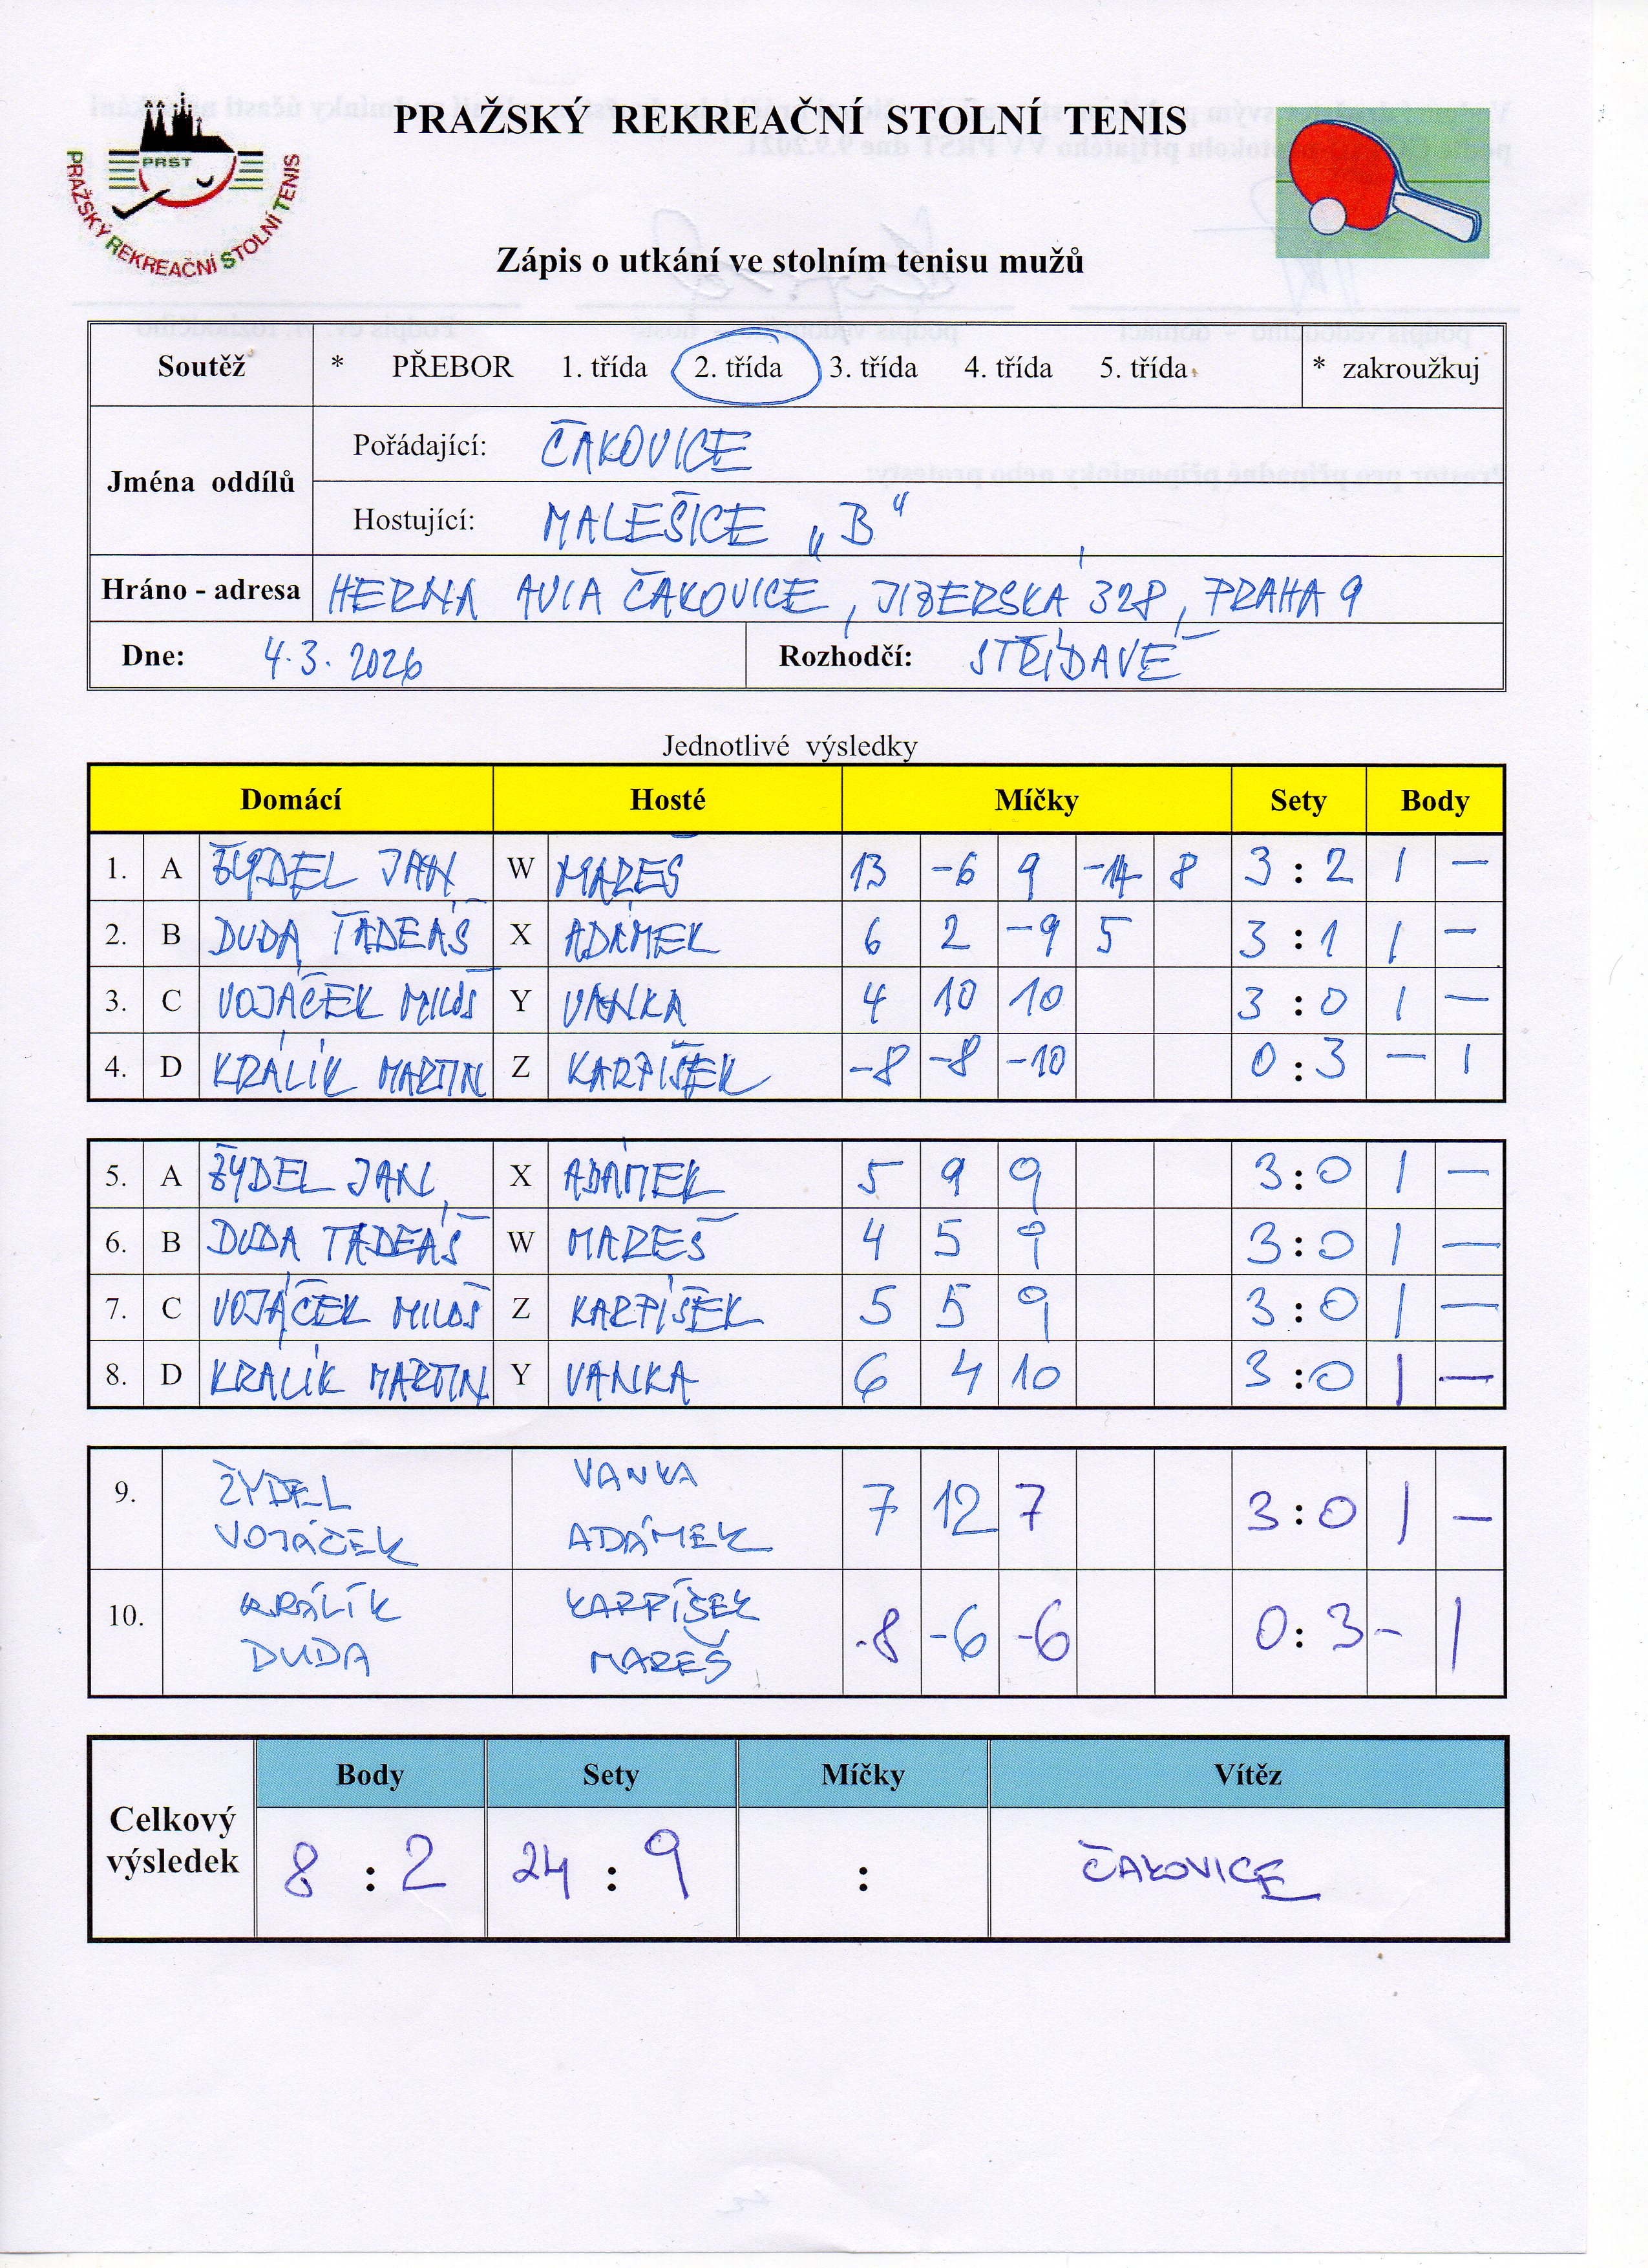 PRAŽSKÝ REKREAČNÍ STOLNÍ TENIS
PRST
PRAŽSKÝ REKREAČNÍ STOLNÍ TENIS
Zápis o utkání ve stolním tenisu mužů
Soutěž * PŘEBOR 1. třída 2. třída 3. třída 4. třída 5. třída * zakroužkuj
Jména oddílů
Pořádající: ČAKOVICE
Hostující: MALEŠICE „B“
Hráno - adresa HERNA AVIA ČAKOVICE, JIZERSKÁ 328, PRAHA 9
Dne: 4.3.2026 Rozhodčí: STŘÍDAVĚ
Jednotlivé výsledky
Domácí Hosté Míčky Sety Body
1. A ŽYDEL JAN W MAREŠ 13 -6 9 -14 8 3 : 2 1 —
2. B DUDA TADEÁŠ X ADÁMEK 6 2 -9 5 3 : 1 1 —
3. C VOJÁČEK MILOŠ Y VANKA 4 10 10 3 : 0 1 —
4. D KRÁLÍK MARTIN Z KARPÍŠEK -8 -8 -10 0 : 3 — 1
5. A ŽYDEL JAN X ADÁMEK 5 9 9 3 : 0 1 —
6. B DUDA TADEÁŠ W MAREŠ 4 5 9 3 : 0 1 —
7. C VOJÁČEK MILOŠ Z KARPÍŠEK 5 5 9 3 : 0 1 —
8. D KRALÍK MARTIN Y VANKA 6 4 10 3 : 0 1 —
9. ŽYDEL VANKA 7 12 7 3 : 0 1 —
VOJÁČEK ADÁMEK
10. KRÁLÍK KARPÍŠEK -8 -6 -6 0 : 3 - 1
DUDA MAREŠ
Celkový výsledek
Body Sety Míčky Vítěz
8 : 2 24 : 9 : ČAKOVICE